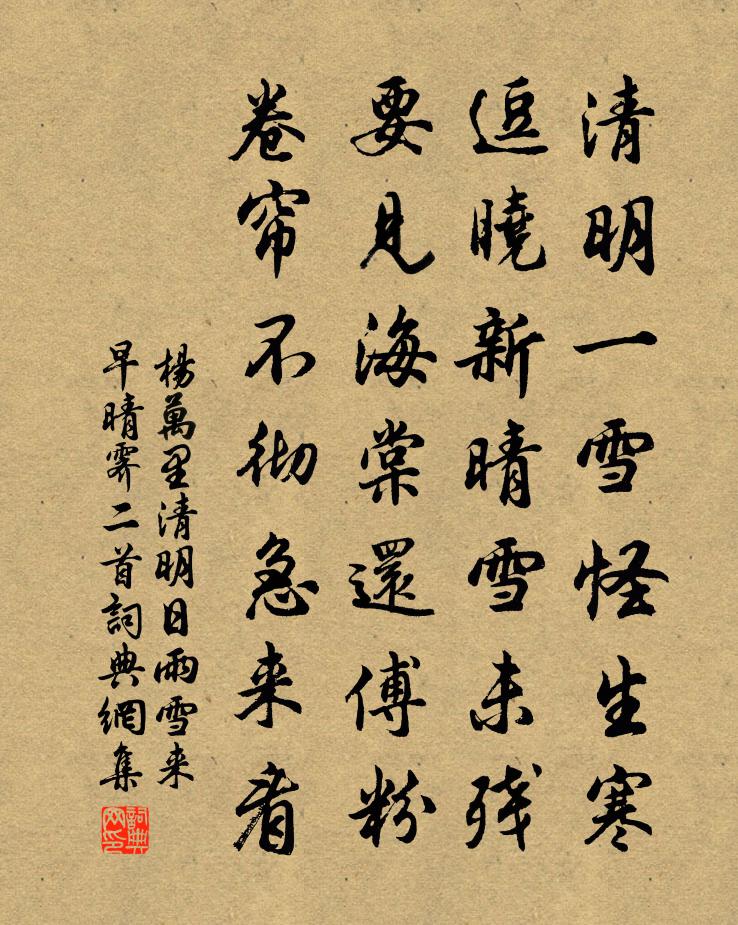 清明一雪怪生寒
逗曉新晴雪未残
要見海棠還傅粉
卷帘不彻急来看
楊萬里清明日雨雪来
早晴霽二首詞典網集
詞典
网印